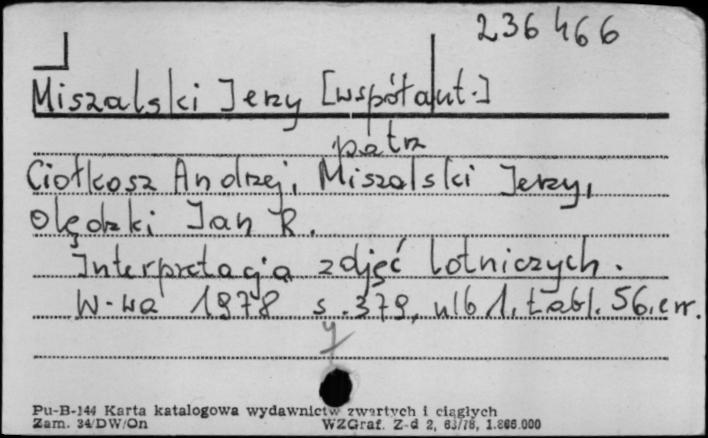 236466
Miszalski Jerzy [współaut.]
patrz
Ciołkosz Andrzej, Miszalski Jerzy,
Olędzki Jan R.
Interpretacja zdjęć lotniczych.
W-wa 1978 s. 379, ulb 1, tabl. 56, err.
y
Pu-B-144 Karta katalogowa wydawnictw zwartych i ciągłych
Zam. 34/DW/On WZGraf. Z-d 2, 63/78, 1.866.000